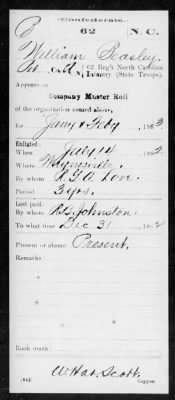 (Confederate.)
62 N.C.
William Beasley
Pvt, Co. A, 62 Reg't North Carolina
Infantry (State Troops).
Appears on
Company Muster Roll
of the organization named above,
for Jany & Feby, 1863.
Enlisted:
When July 14, 1862
Where Waynesville
By whom R.G.A. Love
Period 3 yrs.
Last paid:
By whom R.B. Johnston
To what time Dec 31, 1862
Present or absent Present
Remarks:
Book mark:
(642)
W. Hat. Scott
Copyist.